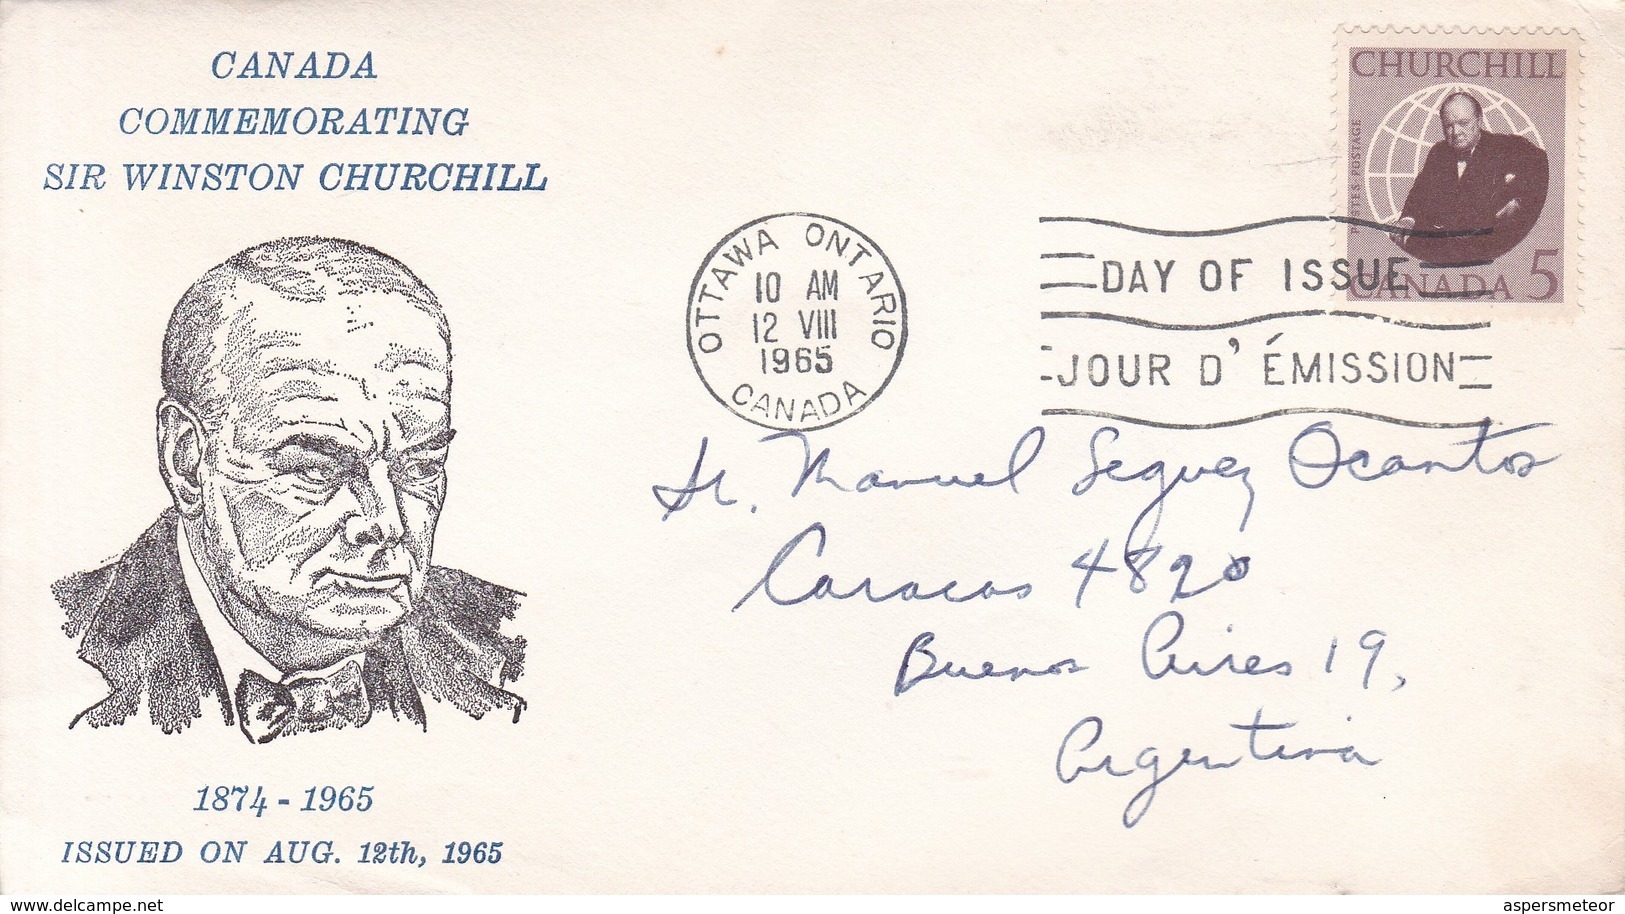 CANADA
COMMEMORATING
SIR WINSTON CHURCHILL
CHURCHILL
POSTES POSTAGE
CANADA 5
OTTAWA ONTARIO
10 AM
12 VIII
1965
CANADA
DAY OF ISSUE
JOUR D' ÉMISSION
Sr. Manuel Seguez Ocantos
Caracas 4820
Buenos Aires 19,
Argentina
1874 - 1965
ISSUED ON AUG. 12th, 1965
www.delcampe.net
aspersmeteor